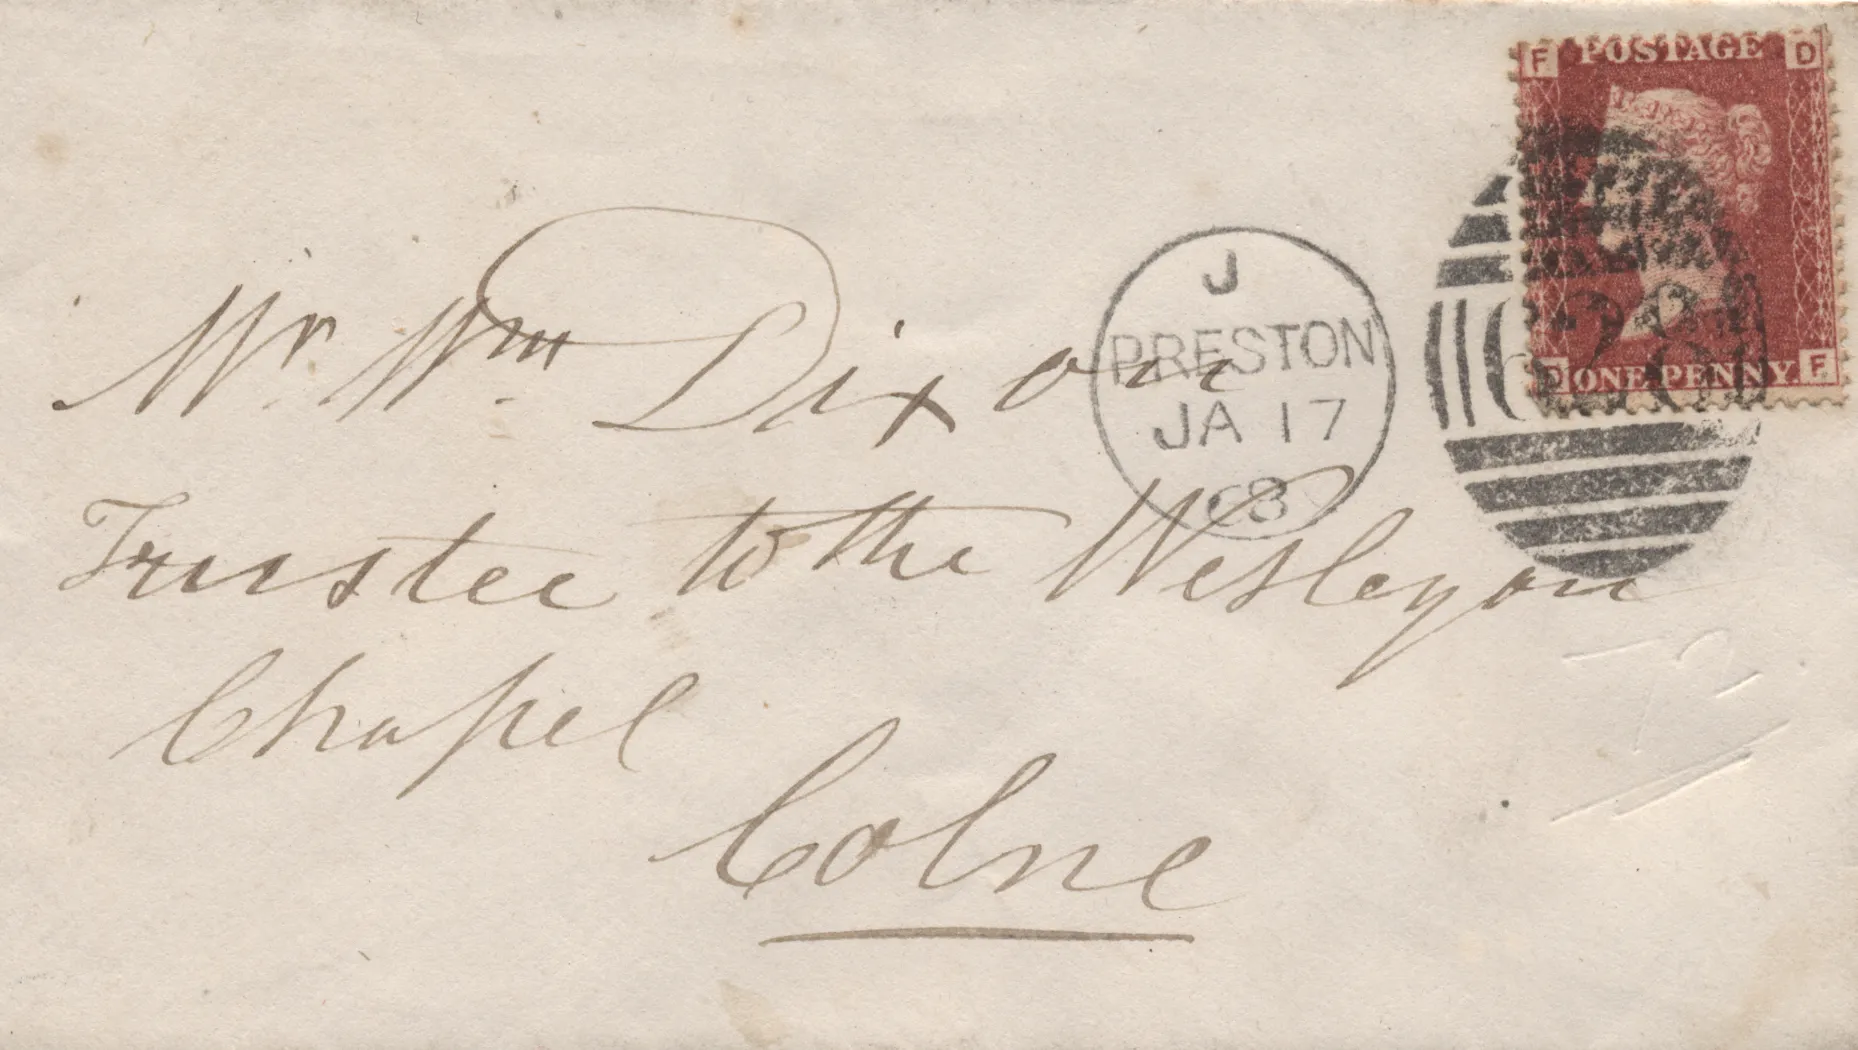 F POSTAGE D
D ONE PENNY F
J
PRESTON
JA 17
68
Mr. Wm. Dixon
Trustee to the Wesleyan
Chapel
Colne